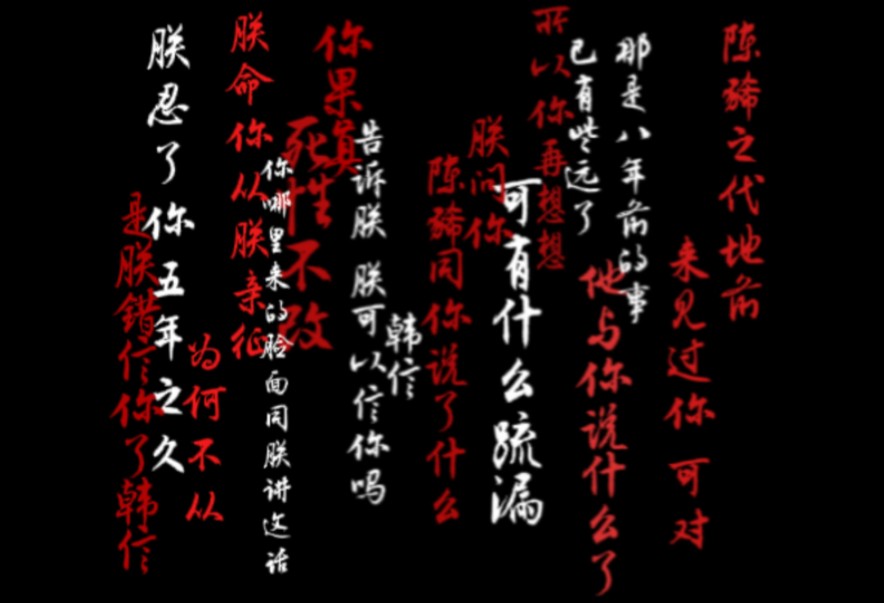 陈豨之代地前
来见过你 可对
那是八年前的事
已有些远了
他与你说什么了
所以你再想想
可有什么疏漏
朕问你
陈豨同你说了什么
韩信
告诉朕 朕可以信你吗
你果真
死性不改
你哪里来的脸面同朕讲这话
朕命你从朕亲征
为何不从
朕忍了你五年之久
是朕错信你了韩信